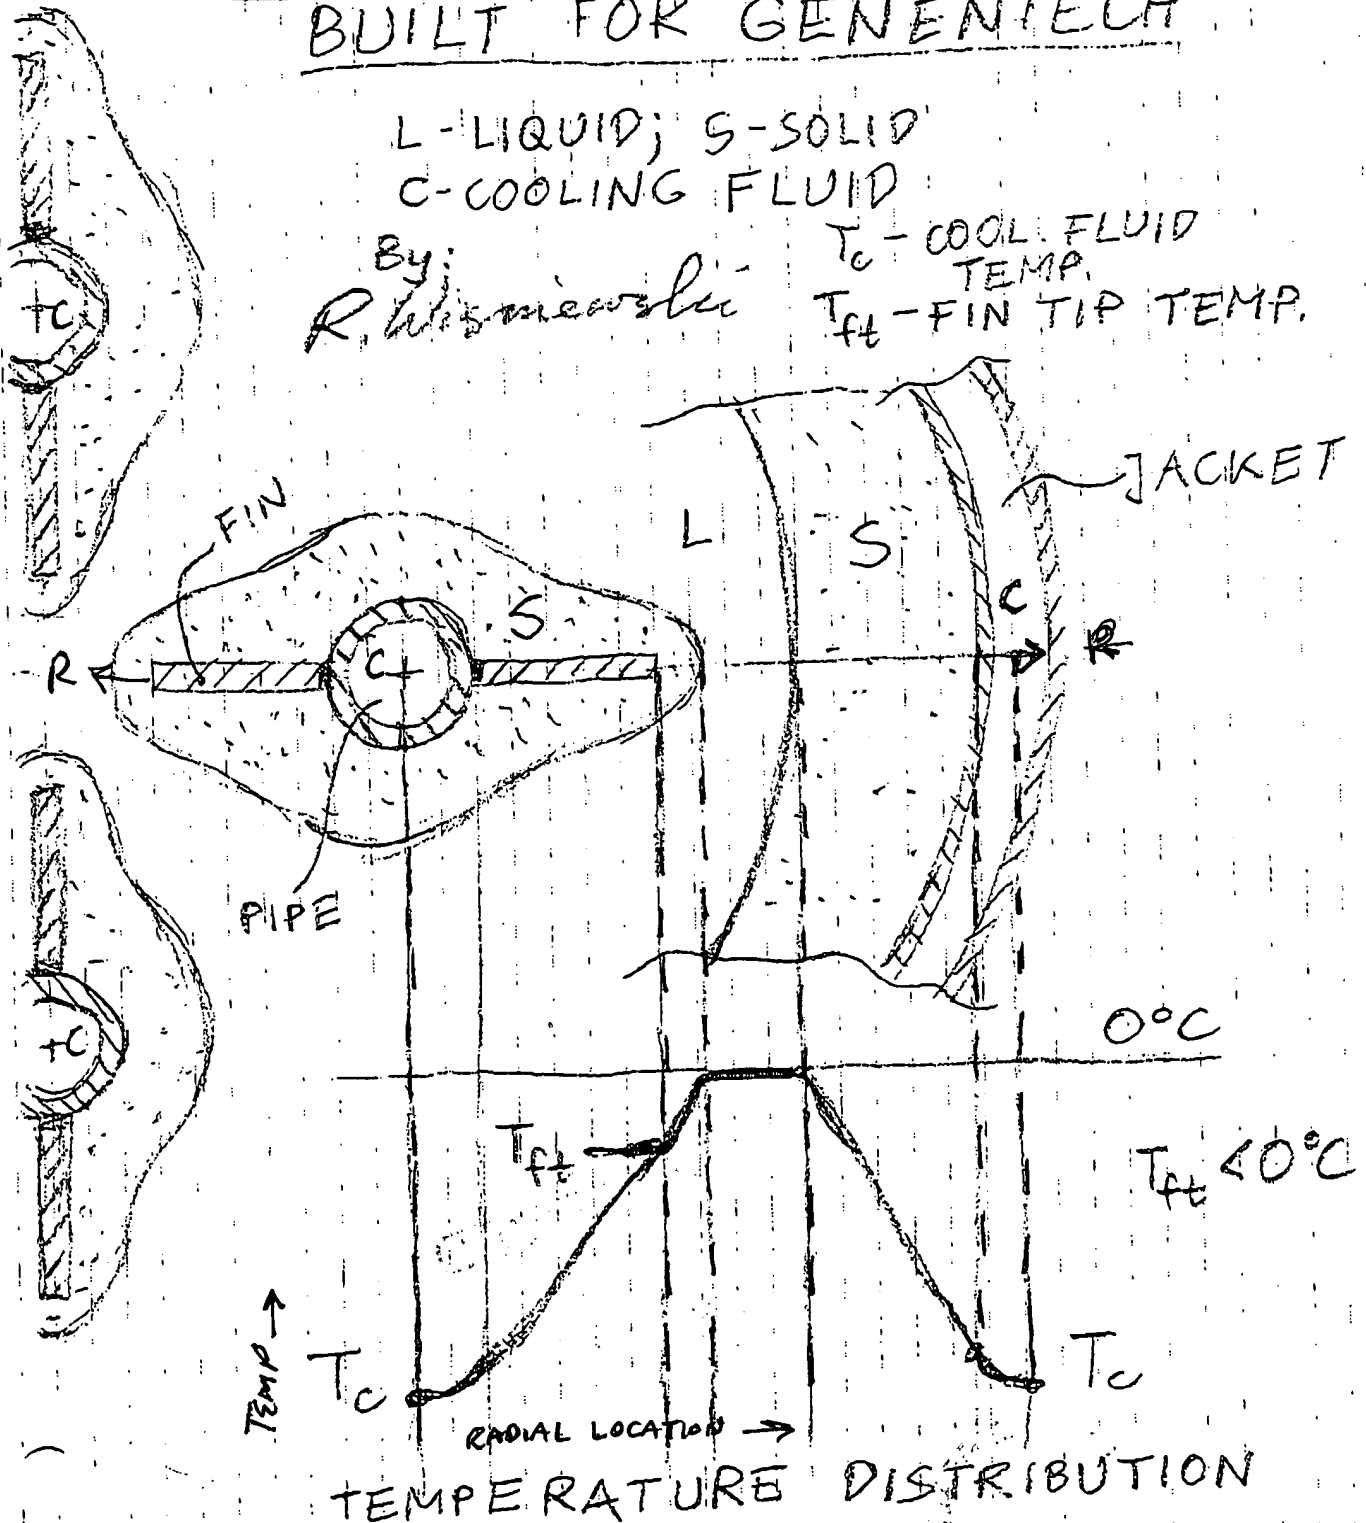 BUILT FOR GENENTECH
L-LIQUID; S-SOLID
C-COOLING FLUID
By:
R. Wisniewski
Tc - COOL. FLUID
TEMP.
Tft - FIN TIP TEMP.
+C
JACKET
FIN
L
S
S
C
R
C+
R
PIPE
+C
0°C
Tft
Tft < 0°C
TEMP →
Tc
Tc
RADIAL LOCATION →
TEMPERATURE DISTRIBUTION